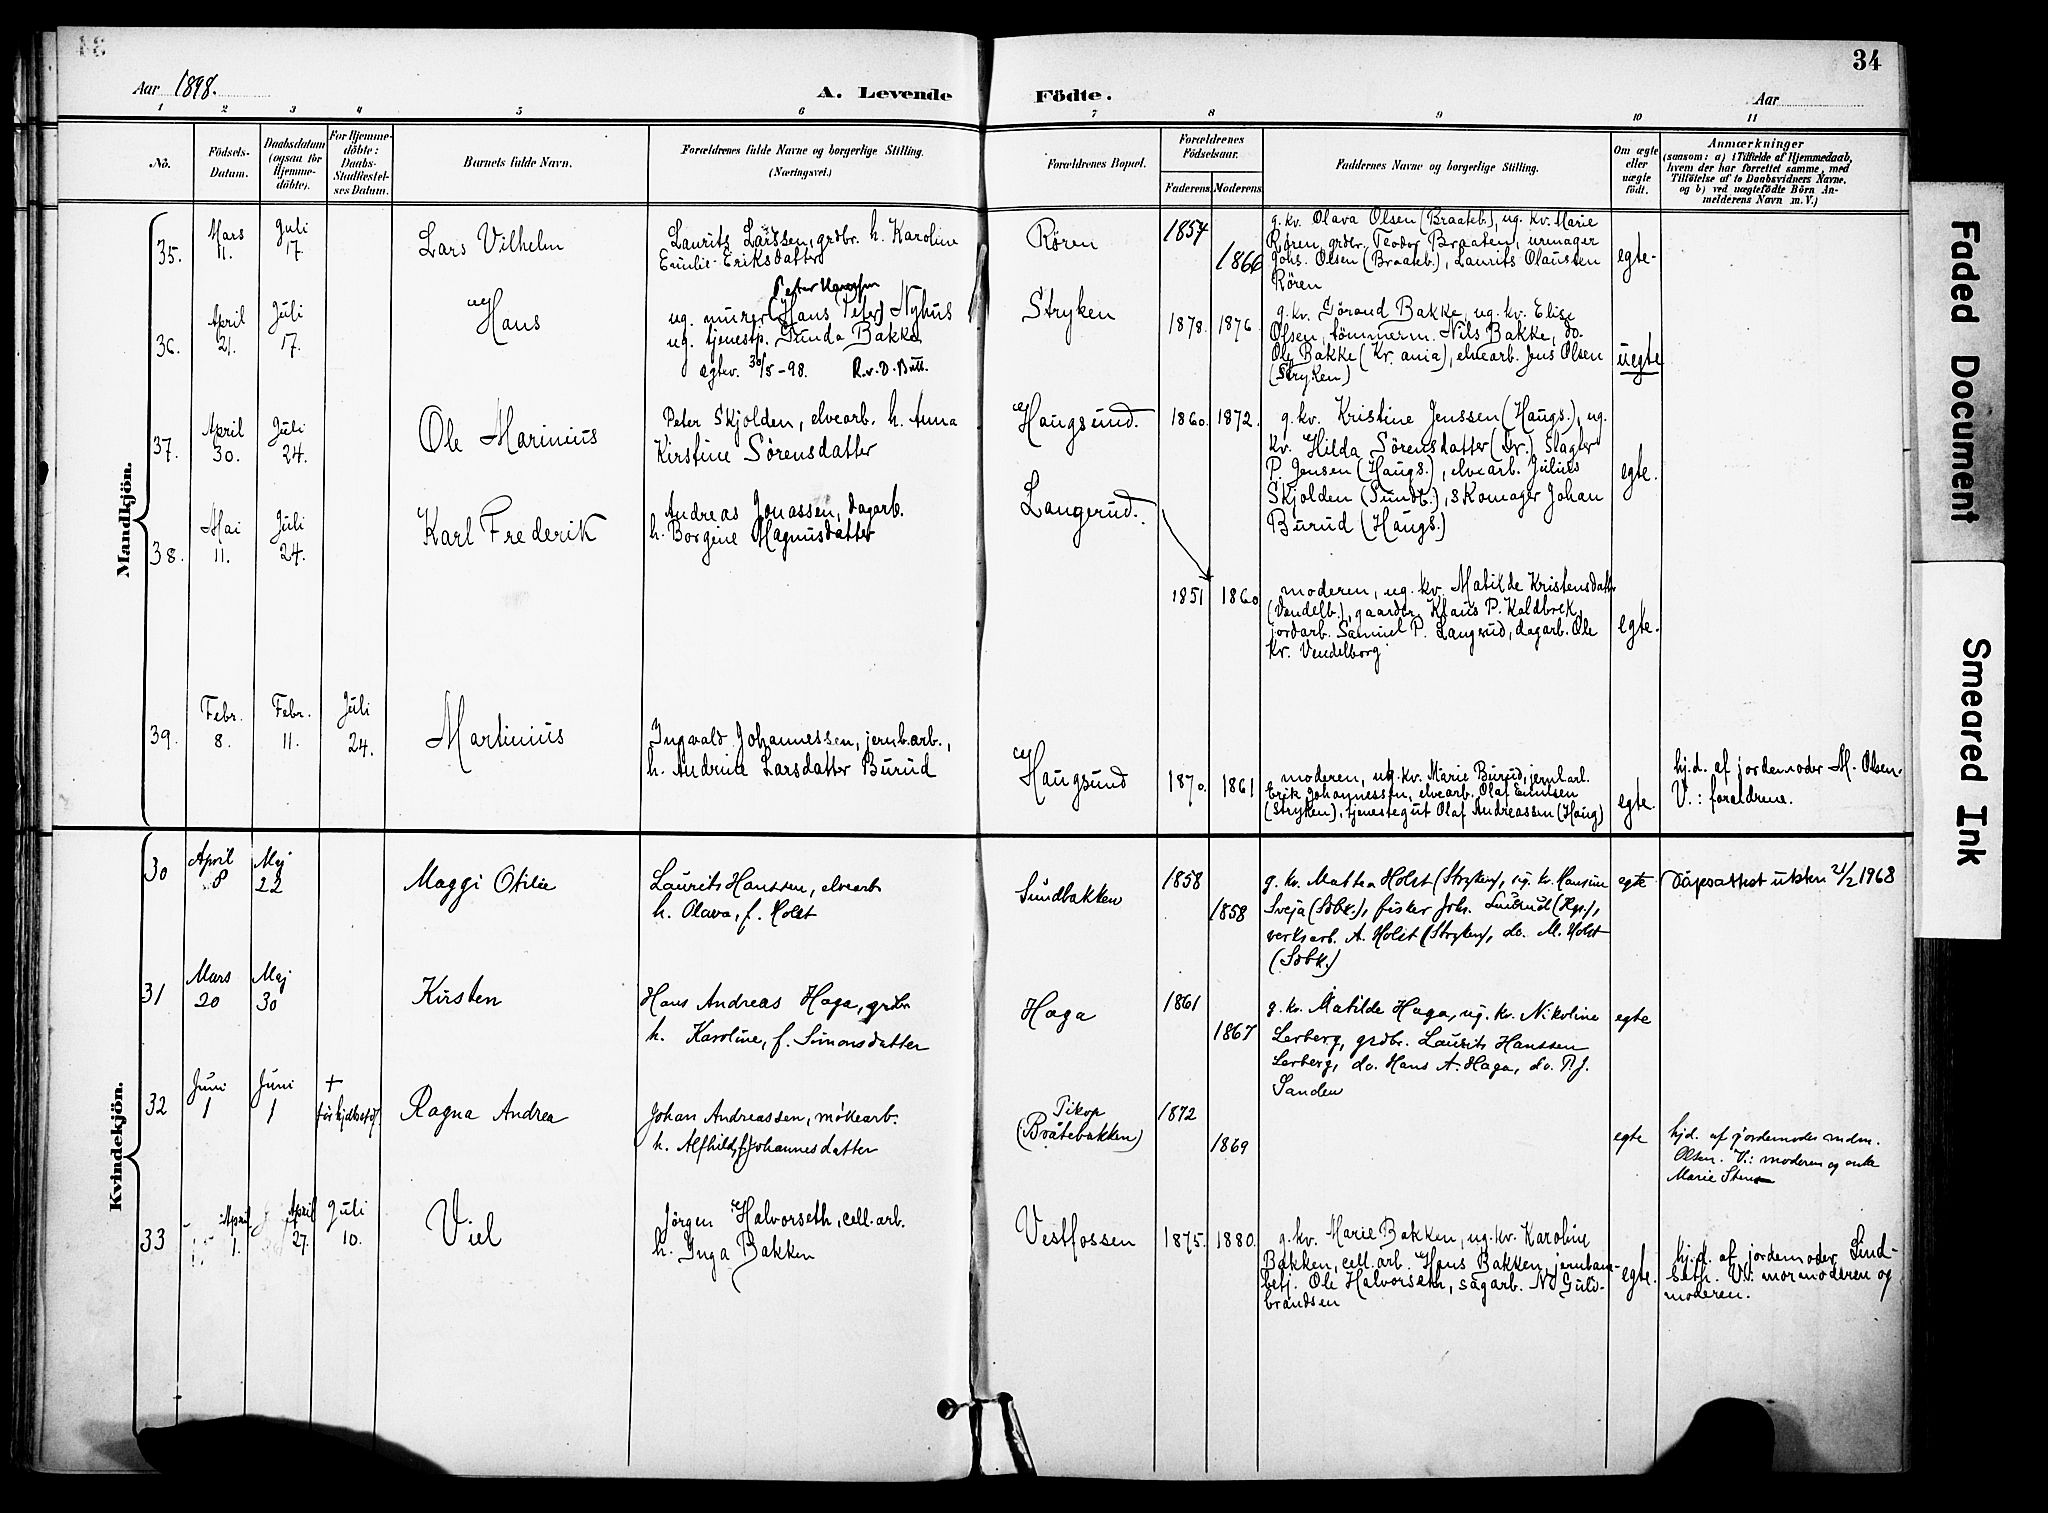 34
Aar 1898.
A. Levende Födte.
Aar
1 2 3 4 5 6 7 8 9 10 11
No.
Födsels-
Datum.
Daabsdatum
(ogsaa for
Hjemme-
döbte).
For Hjemme-
döbte:
Daabs-
Stadfæstel-
ses Datum.
Barnets fulde Navn.
Forældrenes fulde Navne og borgerlige Stilling.
(Næringsvei.)
Forældrenes Bopæl.
Forældrenes
Födselsaar.
Faderens. Moderens.
Faddernes Navne og borgerlige Stilling.
Om ægte
eller
uægte
födt.
Anmærkninger
(saasom: a) i Tilfælde af Hjemmedaab,
hvem der har forrettet samme, med
Tilföielse af to Daabsvidners Navne,
og b) ved uægtefödte Börn An-
melderens Navn m. V.)
Mandkjön.
35.
Mars
11.
Juli
17.
Lars Vilhelm
Laurits Larssen, grdbr. h. Karoline
Emilie Eriksdatter
Røren
1857
1866
g. kv. Olava Olsen (Braateb.), ug. kv. Marie
Røren, grdbr. Teodor Braaten, urmager
Johs. Olsen (Braateb.), Laurits Olaussen
Røren
egte.
36.
April
21.
Juli
17.
Hans
ug. murer (Hans Peter) Nyhus
ug. tjenestp. Gunda Bakke
egtev. 30/5 - 98. R. v. D. Butt.
Stryken
1878. 1876.
g. kv. Gørand Bakke, ug. kv. Elise
Olsen, tømmerm. Nils Bakke, do.
Ole Bakke (Kr.ania), elvearb. Jens Olsen
(Stryken)
uegte
37.
April
30.
Juli
24.
Ole Marinius
Peter Skjolden, elvearb. h. Anna
Kirstine Sørensdatter
Haugsund.
1860. 1872.
g. kv. Kristine Jenssen (Haugs.), ug.
kv. Hilda Sørensdatter (Dr.), Slagter
P. Jensen (Haugs.), elvearb. Julius
Skjolden (Sundb.), skomager Johan
Burud (Haugs.)
egte.
38.
Mai
11.
Juli
24.
Karl Frederik
Andreas Jonassen, dagarb.
h. Borgine Magnusdatter
Langerud.
1851 1860
moderen, ug. kv. Matilde Kristensdatter
(Vendelb.), gaardbr. Klaus P. Kaldbrek,
jordarb. Samuel P. Langrud, dagarb. Ole
Kr. Vendelborg
egte.
39.
Febr.
8.
Febr.
11.
Juli
24.
Martinius
Ingvald Johannessen, jernb.arb.,
h. Andrine Larsdatter Burud
Haugsund
1870. 1861
moderen, ug. kv. Marie Burud, jernb.arb.
Erik Johannessen, elvearb. Olaf Emilsen
(Stryken), tjenestegut Olaf Andreassen (Haug)
egte.
hj.d. af jordemoder M. Olsen.
V.: forældrene.
Kvindekjön.
30
April
8
Maj
22
Maggi Otilie
Laurits Hanssen, elvearb
h. Olava, f. Holst
Sundbakken
1858
1858
g. kv. Mathea Holst (Stryken), ug. kv. Hansine
Sveja (Sdbk.), fisker Joh. (Hgs.),
verksarb. A. Holst (Stryken), do. M. Holst
(Sdbk.)
egte
Dåpsattest utsten 21/2 1968
31
Mars
20
Maj
30
Kirsten
Hans Andreas Haga, grdbr.
h. Karoline, f. Simonsdatter
Haga
1861
1867
g. kv. Matilde Haga, ug. kv. Nikoline
Lerberg, grdbr. Laurits Hanssen
Lerberg, do. Hans A. Haga, do. P. J.
Sanden
egte
32
Juni
1
Juni
1
+
Ragna Andrea
Johan Andreassen, møllearb.
h. Alfhild, f. Johannesdatter
Pikop
(Bråtebakken)
1872
1869
egte
hj.d. af jordemoder mdm.
Olsen. V.: moderen og enke
Marie Stens
33
April
1.
April
27.
Juli
10.
Viel
Jørgen Halvorseth, cell.arb.
h. Inga Bakken
Vestfossen
1875. 1880.
g. kv. Marie Bakken, ug. kv. Karoline
Bakken, cell.arb. Hans Bakken, jernban-
betj. Ole Halvorseth, sagarb. N. Guld-
brandsen
egte.
hj.d. af jordemoder Lind-
seth. V.: mormoderen og
moderen.
Faded Document
Smeared Ink